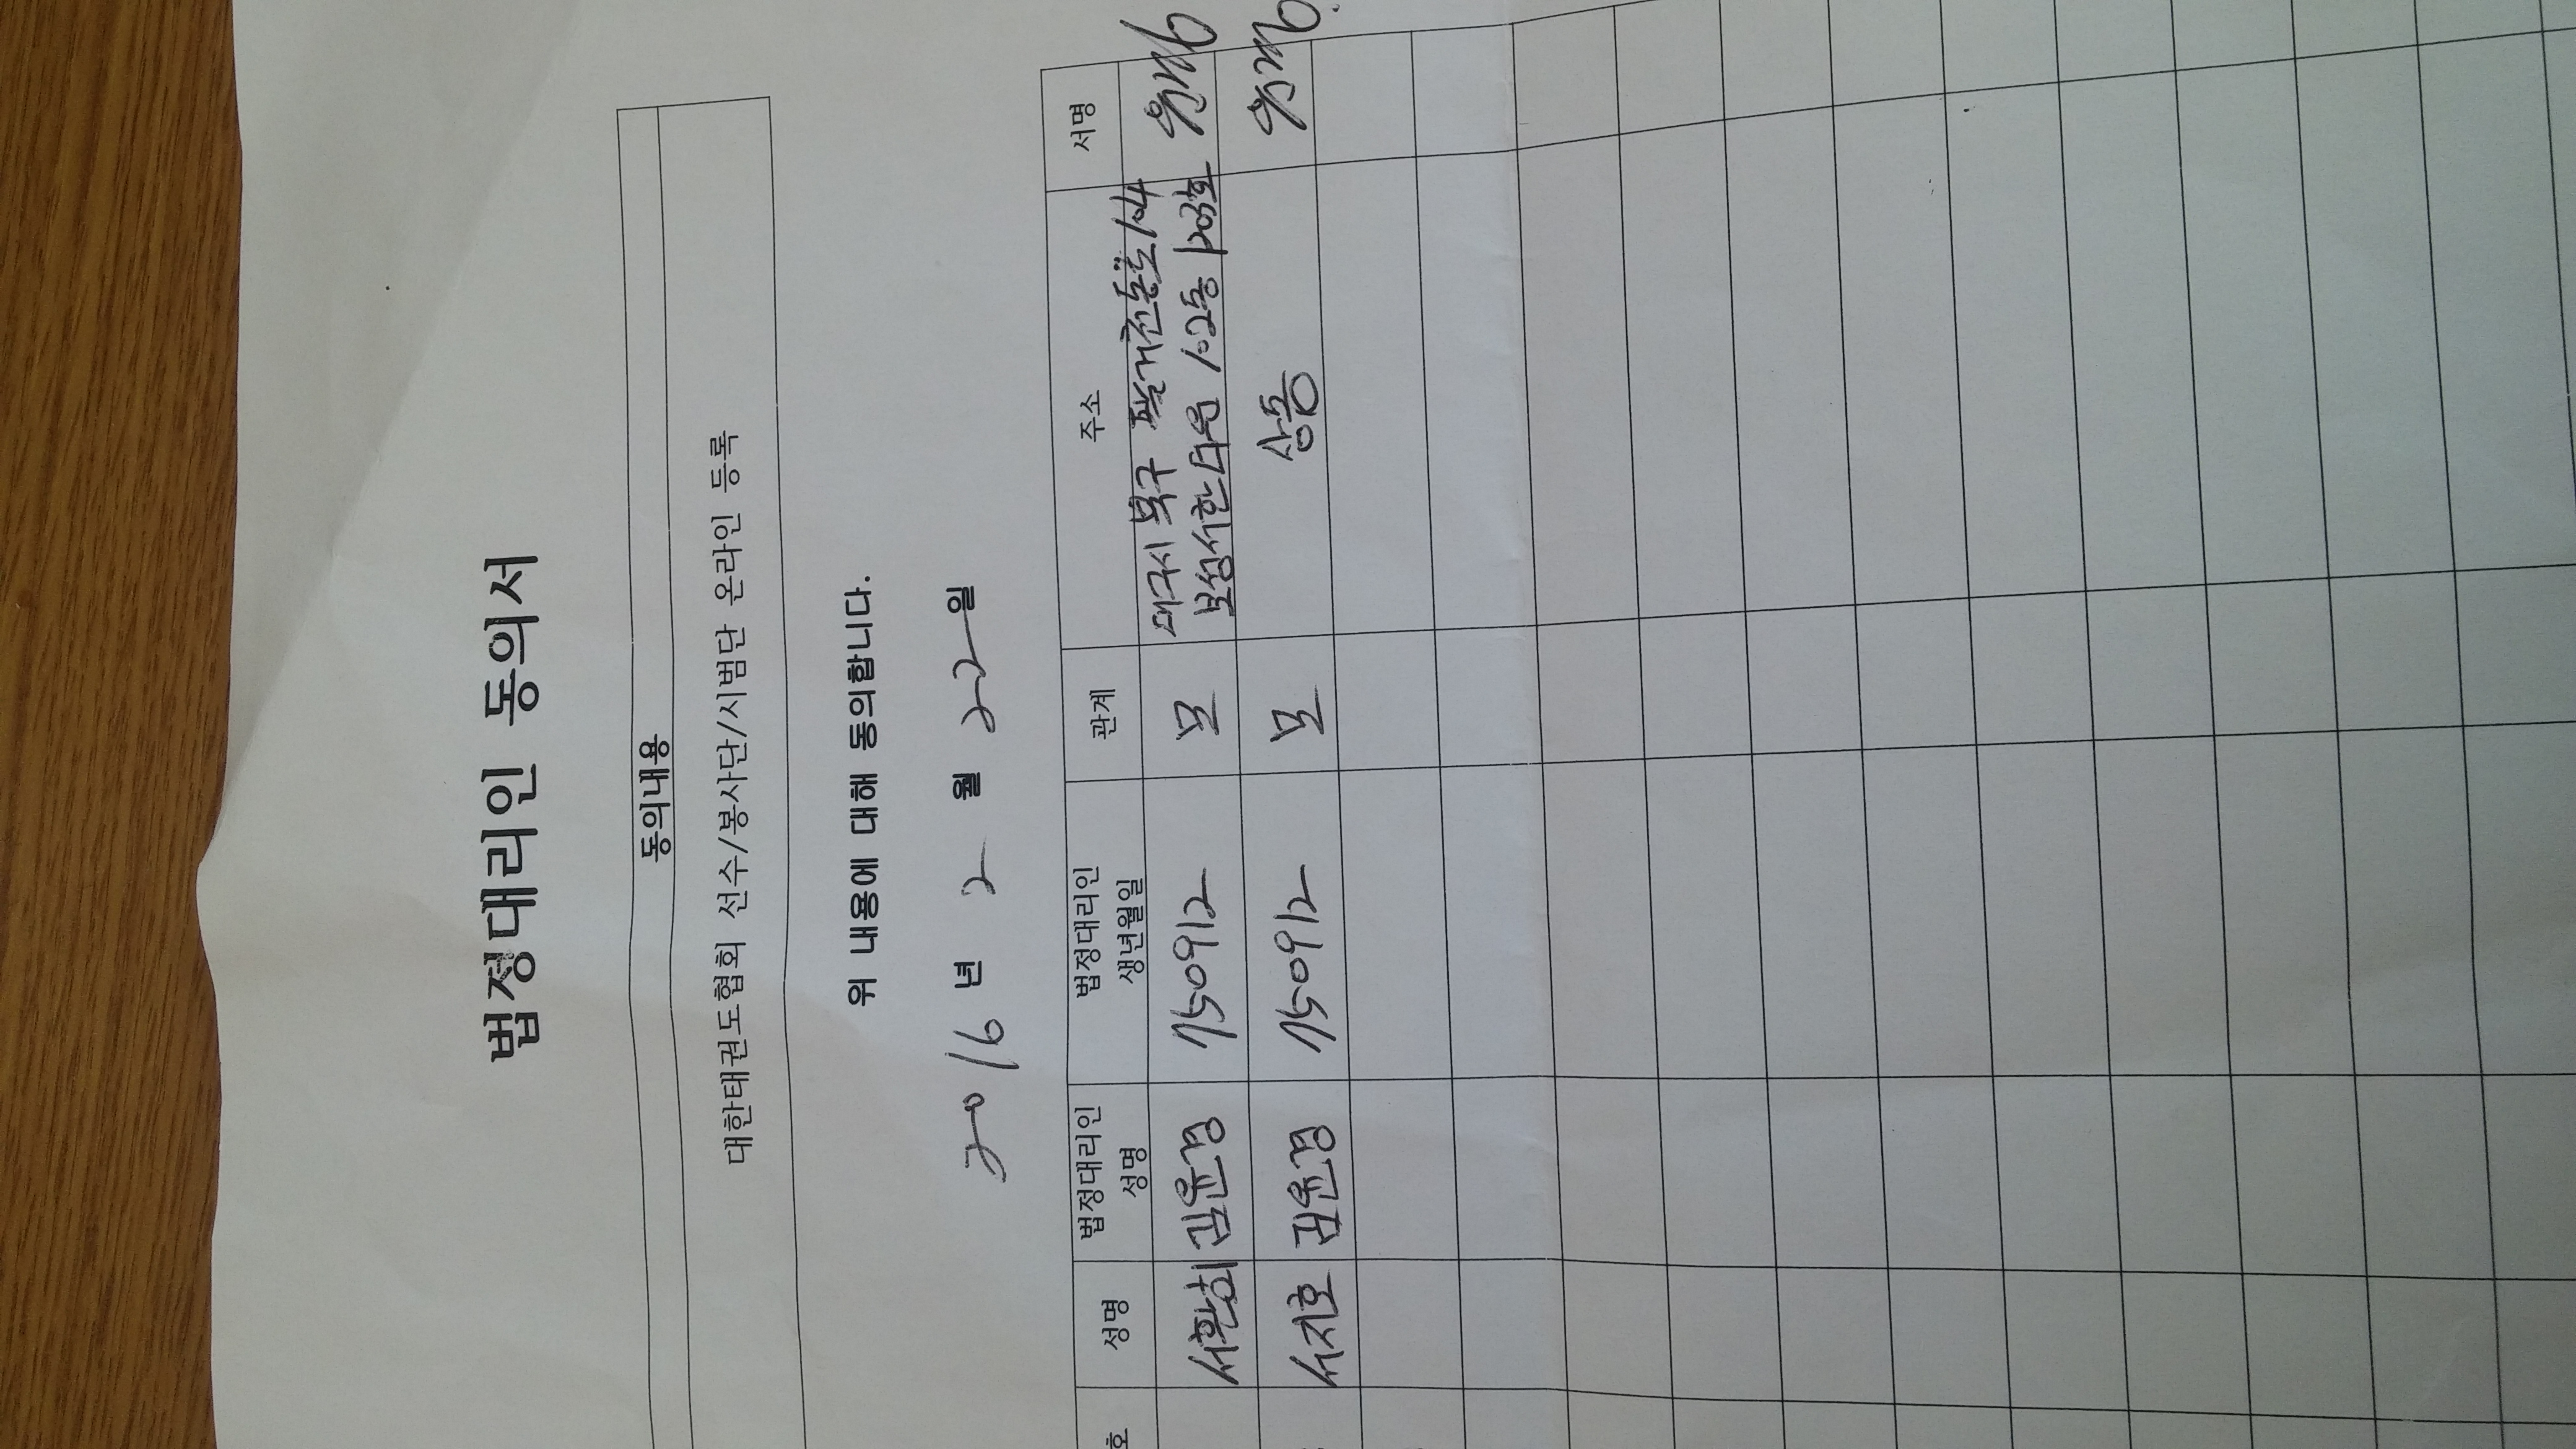 법정대리인 동의서
동의내용
대한태권도협회 선수/봉사단/시범단 온라인 등록
위 내용에 대해 동의합니다.
2016 년 2 월 22 일
호 성명 법정대리인 성명 법정대리인 생년월일 관계 주소 서명
서환희 김윤경 750912 모 대구시 북구 팔거천동로 104
보성서한타운 102동 1203호
서지호 김윤경 750912 모 상동